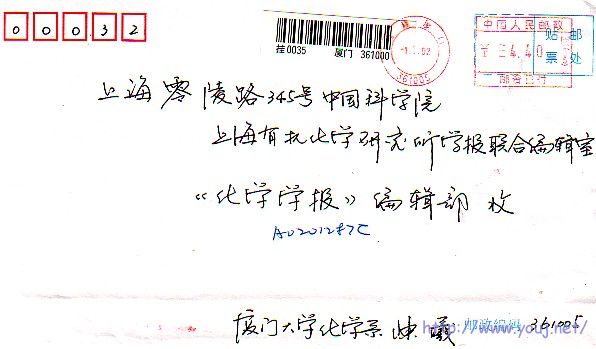 00032
挂0035 厦门 361000
361005
中国人民邮政
¥ 34.40
贴 邮
票 处
上海零陵路345号中国科学院
上海有机化学研究所学报联合编辑室
《化学学报》编辑部 收
厦门大学化学系
邮政编码 361005
http://www.youj.net/